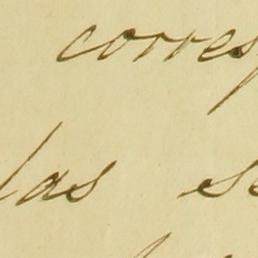 corresp
las se